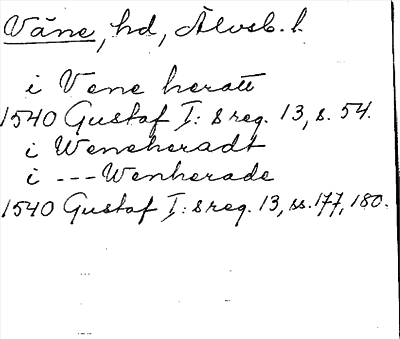 Väne, hd, Älvsb. l.
i Vene heratt
1540 Gustaf I:s reg. 13, s. 54.
i Weneheradt
i --- Wenherade
1540 Gustaf I:s reg. 13, ss. 177, 180.